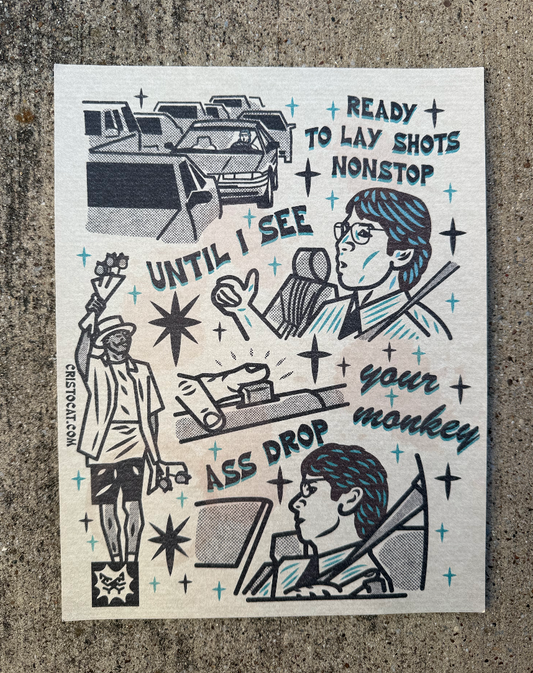 READY
TO LAY SHOTS
NONSTOP
UNTIL I SEE
your
monkey
ASS DROP
CRISTOCAT.COM